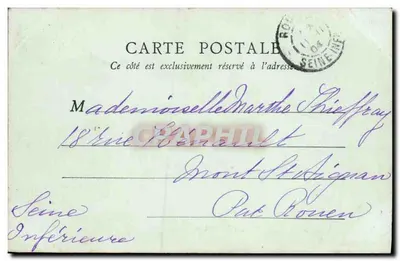 ROU
04
SEINE INFRE
CARTE POSTALE
Ce côté est exclusivement réservé à l'adresse
Mademoiselle Marthe Thieffray
18 rue
Mont St Aignan
Par Rouen
Seine
Inférieure